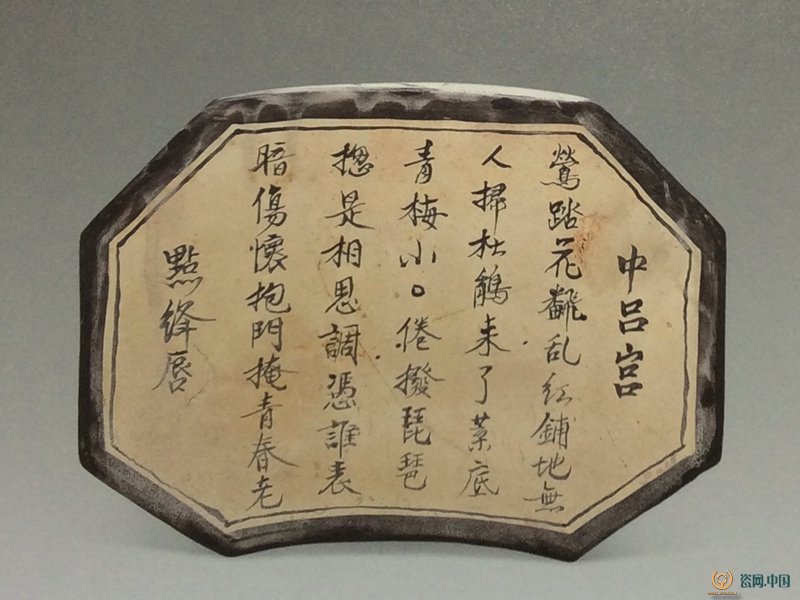 中吕宫
鶯踏花飜乱红鋪地無
人掃杜鵑来了葉底
青梅小口倦撥琵琶
揔是相思調憑誰表
暗傷懷抱門掩青春老
點絳唇
瓷网.中国